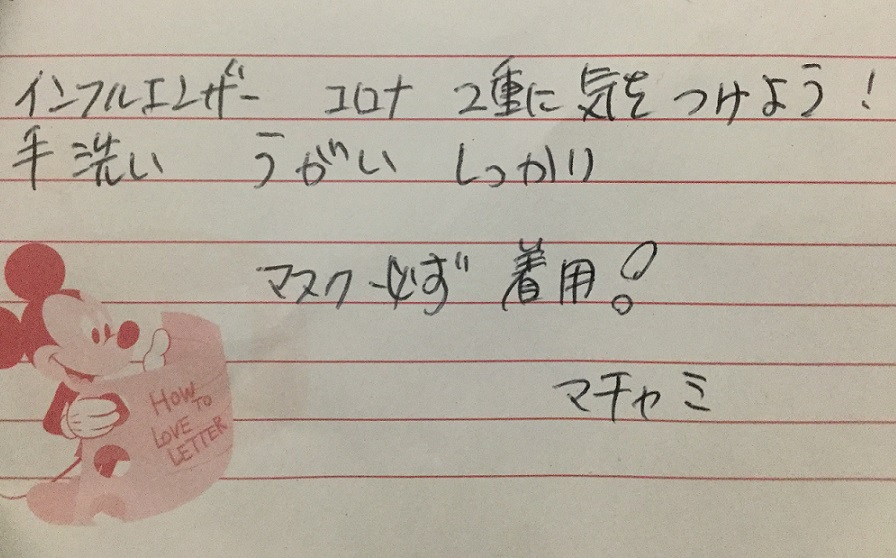 インフルエンザー コロナ 2重に気をつけよう!
手洗い うがい しっかり
マスク必ず 着用!
マチャミ
HOW
TO
LOVE
LETTER